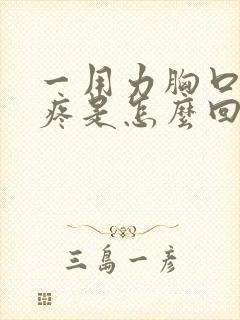 一用力胸口
疼是怎麼回
三島一彥